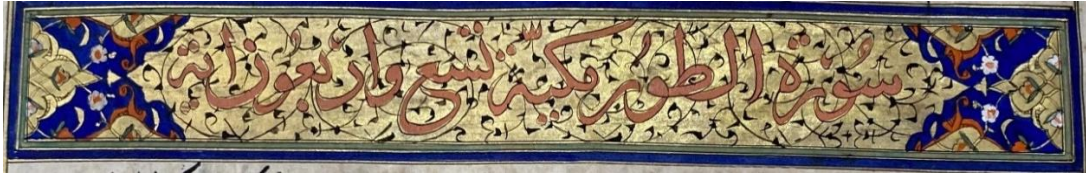 سُوْرَة الطُّوْر مكيّة تسع وَارْبعُوْن اٰية